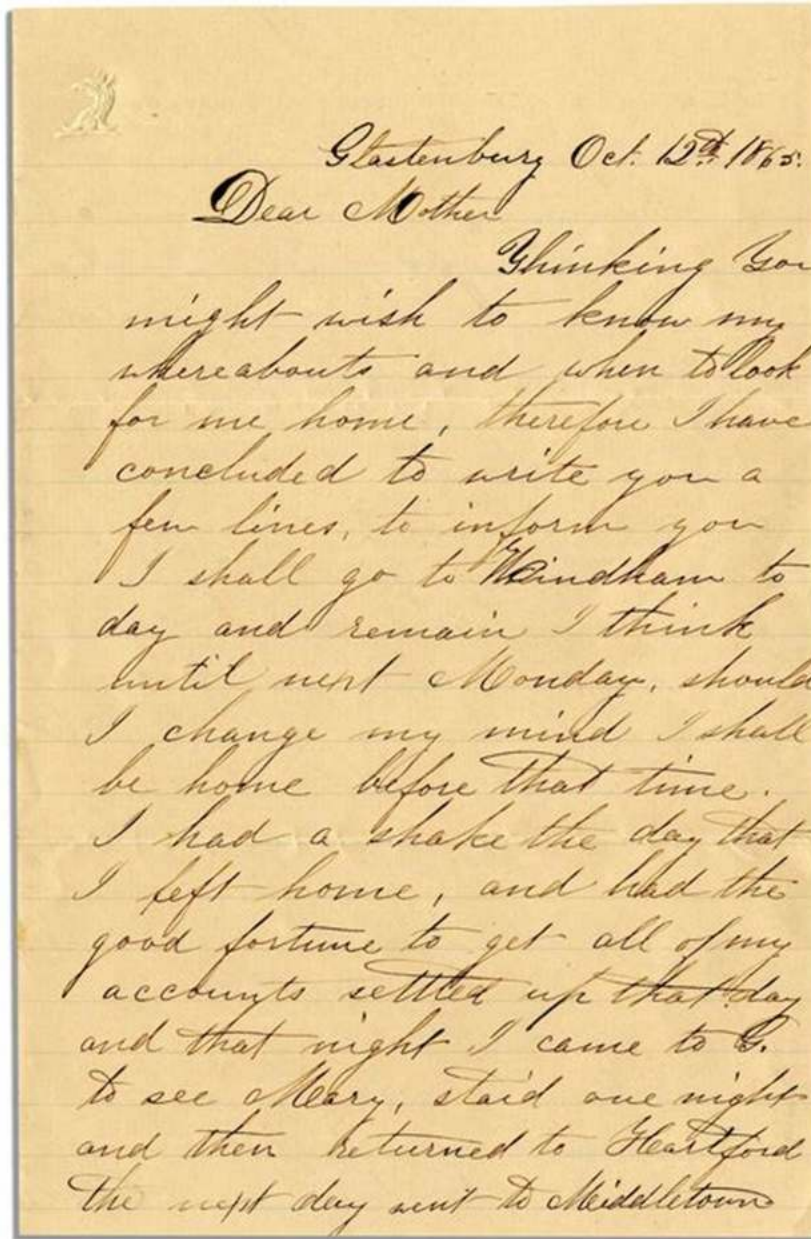 Glastenburg Oct. 12th 1865.
Dear Mother
Thinking You
might wish to know my
whereabouts and when to look
for me home, therefore I have
concluded to write you a
few lines, to inform you
I shall go to Windham to
day and remain I think
until next Monday, should
I change my mind I shall
be home before that time.
I had a shake the day that
I left home, and had the
good fortune to get all of my
accounts settled up that day
and that night I came to G.
to see Mary, staid one night
and then returned to Hartford
the next day went to Middletown